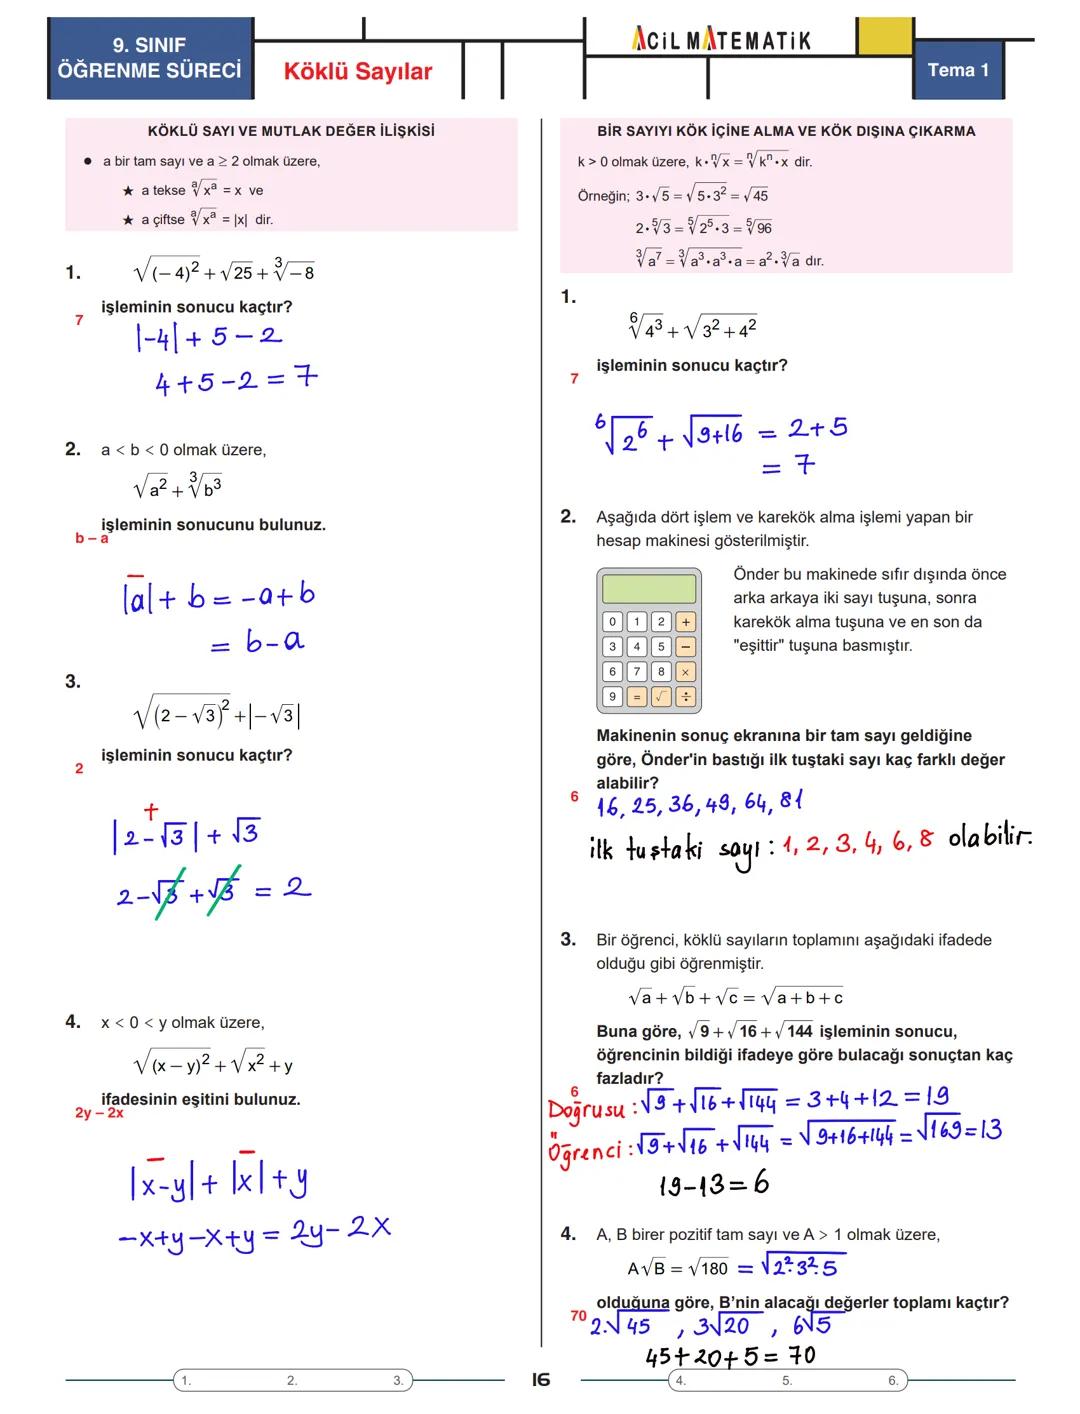 9. SINIF
ÖĞRENME SÜRECİ
Köklü Sayılar
ACiL MATEMATiK
Tema 1
KÖKLÜ SAYI VE MUTLAK DEĞER İLİŞKİSİ
• a bir tam sayı ve a ≥ 2 olmak üzere,
★ a tekse ᵃ√xᵃ = x ve
★ a çiftse ᵃ√xᵃ = |x| dir.
1. √(– 4)² + √25 + ³√– 8
işleminin sonucu kaçtır?
7
|-4| + 5 - 2
4 + 5 - 2 = 7
2. a < b < 0 olmak üzere,
√a² + ³√b³
işleminin sonucunu bulunuz.
b – a
|a| + b = -a+b
= b-a
3.
√(2 – √3)² + |– √3|
işleminin sonucu kaçtır?
2
+
|2-√3| + √3
2-√3 + √3 = 2
4. x < 0 < y olmak üzere,
√(x – y)² + √x² + y
ifadesinin eşitini bulunuz.
2y – 2x
|x-y| + |x| + y
-x+y-x+y = 2y-2x
BİR SAYIYI KÖK İÇİNE ALMA VE KÖK DIŞINA ÇIKARMA
k > 0 olmak üzere, k·ⁿ√x = ⁿ√kⁿ·x dir.
Örneğin; 3·√5 = √5·3² = √45
2·⁵√3 = ⁵√2⁵·3 = ⁵√96
³√a⁷ = ³√a³·a³·a = a²·³√a dır.
1.
⁶√4³ + √3² + 4²
işleminin sonucu kaçtır?
7
⁶√2⁶ + √9+16 = 2+5
= 7
2. Aşağıda dört işlem ve karekök alma işlemi yapan bir
hesap makinesi gösterilmiştir.
0 1 2 +
3 4 5 −
6 7 8 ×
9 = √ ÷
Önder bu makinede sıfır dışında önce
arka arkaya iki sayı tuşuna, sonra
karekök alma tuşuna ve en son da
"eşittir" tuşuna basmıştır.
Makinenin sonuç ekranına bir tam sayı geldiğine
göre, Önder'in bastığı ilk tuştaki sayı kaç farklı değer
alabilir?
6
16, 25, 36, 49, 64, 81
ilk tuştaki sayı : 1, 2, 3, 4, 6, 8 olabilir.
3. Bir öğrenci, köklü sayıların toplamını aşağıdaki ifadede
olduğu gibi öğrenmiştir.
√a + √b + √c = √a + b + c
Buna göre, √9 + √16 + √144 işleminin sonucu,
öğrencinin bildiği ifadeye göre bulacağı sonuçtan kaç
fazladır?
6
Doğrusu : √9 + √16 + √144 = 3+4+12 = 19
Öğrenci : √9 + √16 + √144 = √9+16+144 = √169 = 13
19-13 = 6
4. A, B birer pozitif tam sayı ve A > 1 olmak üzere,
A√B = √180 = √2².3².5
olduğuna göre, B'nin alacağı değerler toplamı kaçtır?
70
2.√45 , 3√20 , 6√5
45+20+5 = 70
1. 2. 3. 16 4. 5. 6.